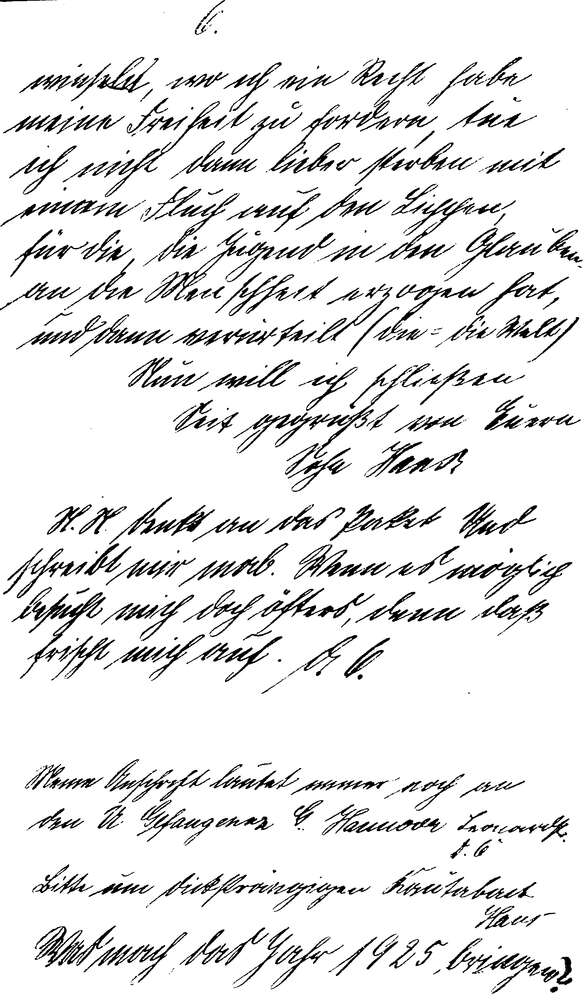 6.
winseln, wo ich ein Recht habe
meine Freiheit zu fordern, tue
ich nicht dann lieber sterben mit
einem Fluch auf den Lippen,
für die, die Jugend in den Glauben
an die Menschheit erzogen hat,
und dann verurteilt (die = die Welt)
Nun will ich schließen
Seit gegrüßt von Euern
Sohn Hans
N.N. denkt an das Paket Und
schreibt mir mab. Wenn es möglich
besucht mich doch öfters, denn daß
frischt mich auf. D. G.
Meine Anschrift lautet immer noch an
den U. Gefangenen G. Hannover Leonardstr.
Bitte um dicksträngigen Kautaback
Hans
Was mach das Jahr 1925 bringen?